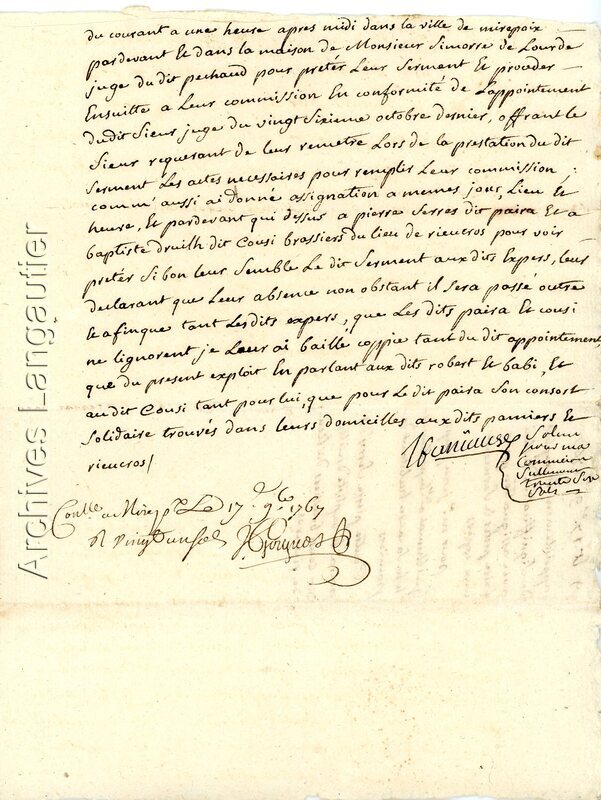 du courant a une heure apres midi dans la ville de mirepoix
pardevant Et dans la maison de Monsieur Simorre de Lourde
juge du dit pechaud pour pretér Leur Serment Et proceder
Ensuitte a Leur commission En conformité de L'appointement
dudit Sieur juge du vingt Sixieme octobre dernier, offrant le
Sieur requerant de leur remetre Lors de la prestation du dit
Serment Les actes necessaires pour remplir Leur commission,
comm' aussi ai donné assignation a memes jour, Lieu Et
heure, Et pardevant qui dessus a pierre Serres dit paira Et a
baptiste druilh dit Cousi brassiers du Lieu de rieucros pour voir
pretér Si bon leur Semble Le dit Serment aux dits Expers, leur
declarant que Leur absence non obstant il Sera passé outre
Et afinque tant Lesdits expers, que Les dits paira et cousi
ne Lignorent je Leur ai baillé coppie tant du dit appointement,
que du present exploit En parlant aux dits robert Et babi, Et
au dit Cousi tant pour lui, que pour Le dit paira Son consort
Solidaire trouvés dans leurs domicilles aux dits pamiers Et
rieucros /
Solvu
pour ma
Commision
trente Six
Sols
Conlle a Mirepx Le 17e 9bre 1767
R vingt un sols
Archives Langautier